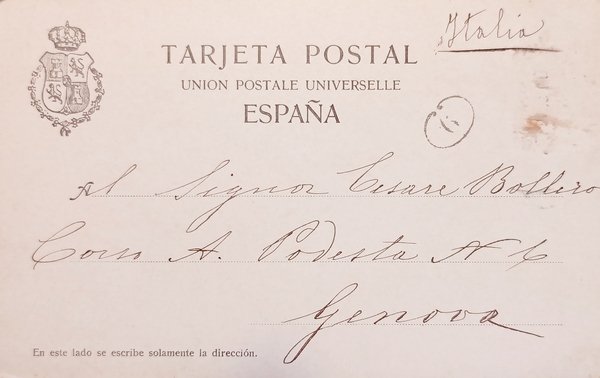 Italia
TARJETA POSTAL
UNION POSTALE UNIVERSELLE
ESPAÑA
Al Signor Cesare Bollero
Corso A. Podesta N 6
Genova
En este lado se escribe solamente la dirección.